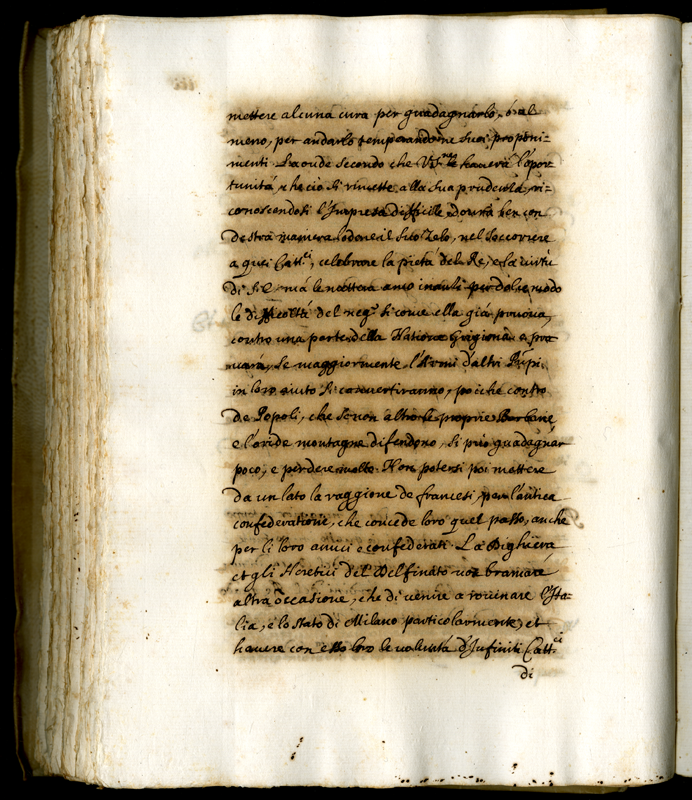 mettere alcuna cura per guadagnarlo, ò al
meno, per andarlo temperando ne suoi proponi=
menti. Laonde secondo che haverà l'opor
tunità, che ciò si rimette alla sua prudenza, ri=
conoscendosi l'Impresa difficile, dovrà ben con
destra maniera lodare il suo Zelo, nel soccorrere
a quei Catt.ci, celebrare la pietà del Re, e la virtù
di S.E. mà le metterà anco inanzi per dolce modo
le difficoltà del neg.o si come ella già pruova,
contro una parte della Natione Grigiona, e pro
varà, se maggiormente l'Armi d'altri Prñpi.
in loro aiuto si convertiranno, poiche contro
de Popoli, che se non altro le proprie
e l'aride montagne difendono, si può guadagnar
poco, e perdere molto. Non potersi poi mettere
da un lato la raggione de francesi, per l'antica
confederatione, che concede loro quel passo, anche
per li loro amici e confederati. La Dighiera
et gli Heretici del Delfinato non bramare
altra occasione, che di venire a rovinare l'Ita=
lia, e lo Stato di Milano particolarmente, et
havere con esso loro le volontà d'Infiniti Catt.ci
di